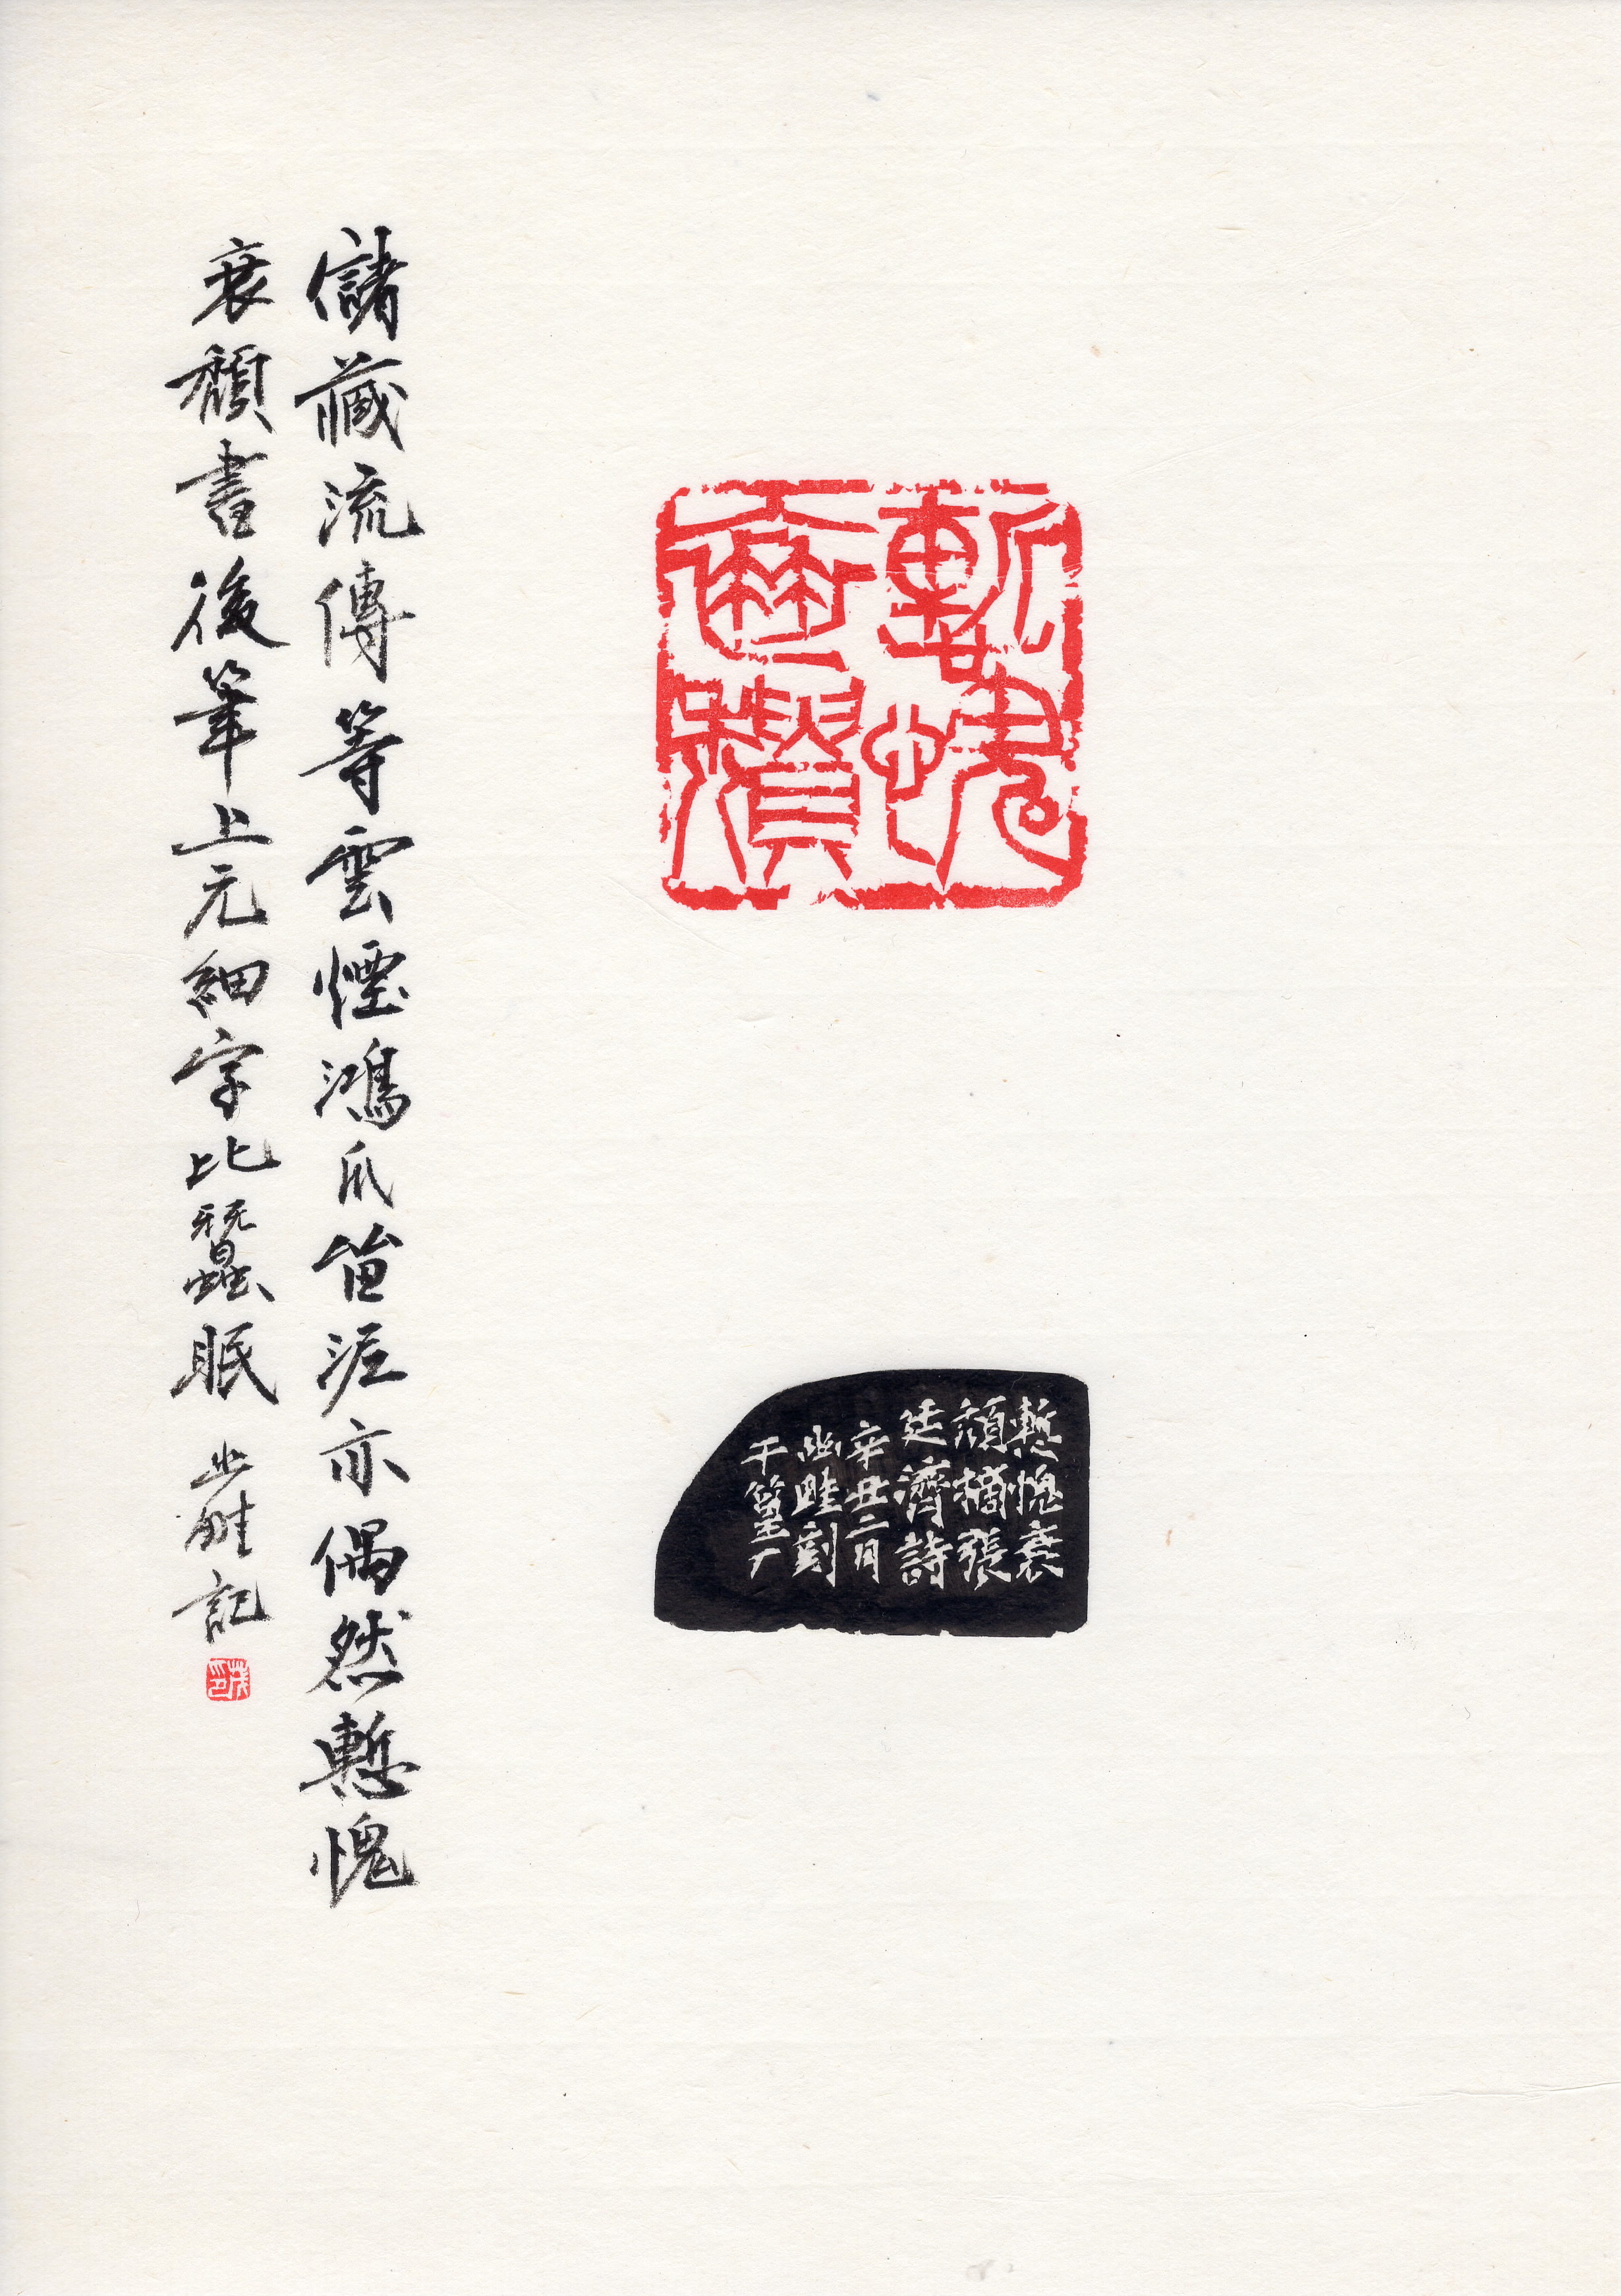 慙愧衰穨
慙愧衰
頹摘張
廷濟詩
辛丑二月
畦刻
于篁厂
儲藏流傳等雲煙鴻爪留泥亦偶然慙愧
衰頹書後筆上元細字比蠶眠 畦記